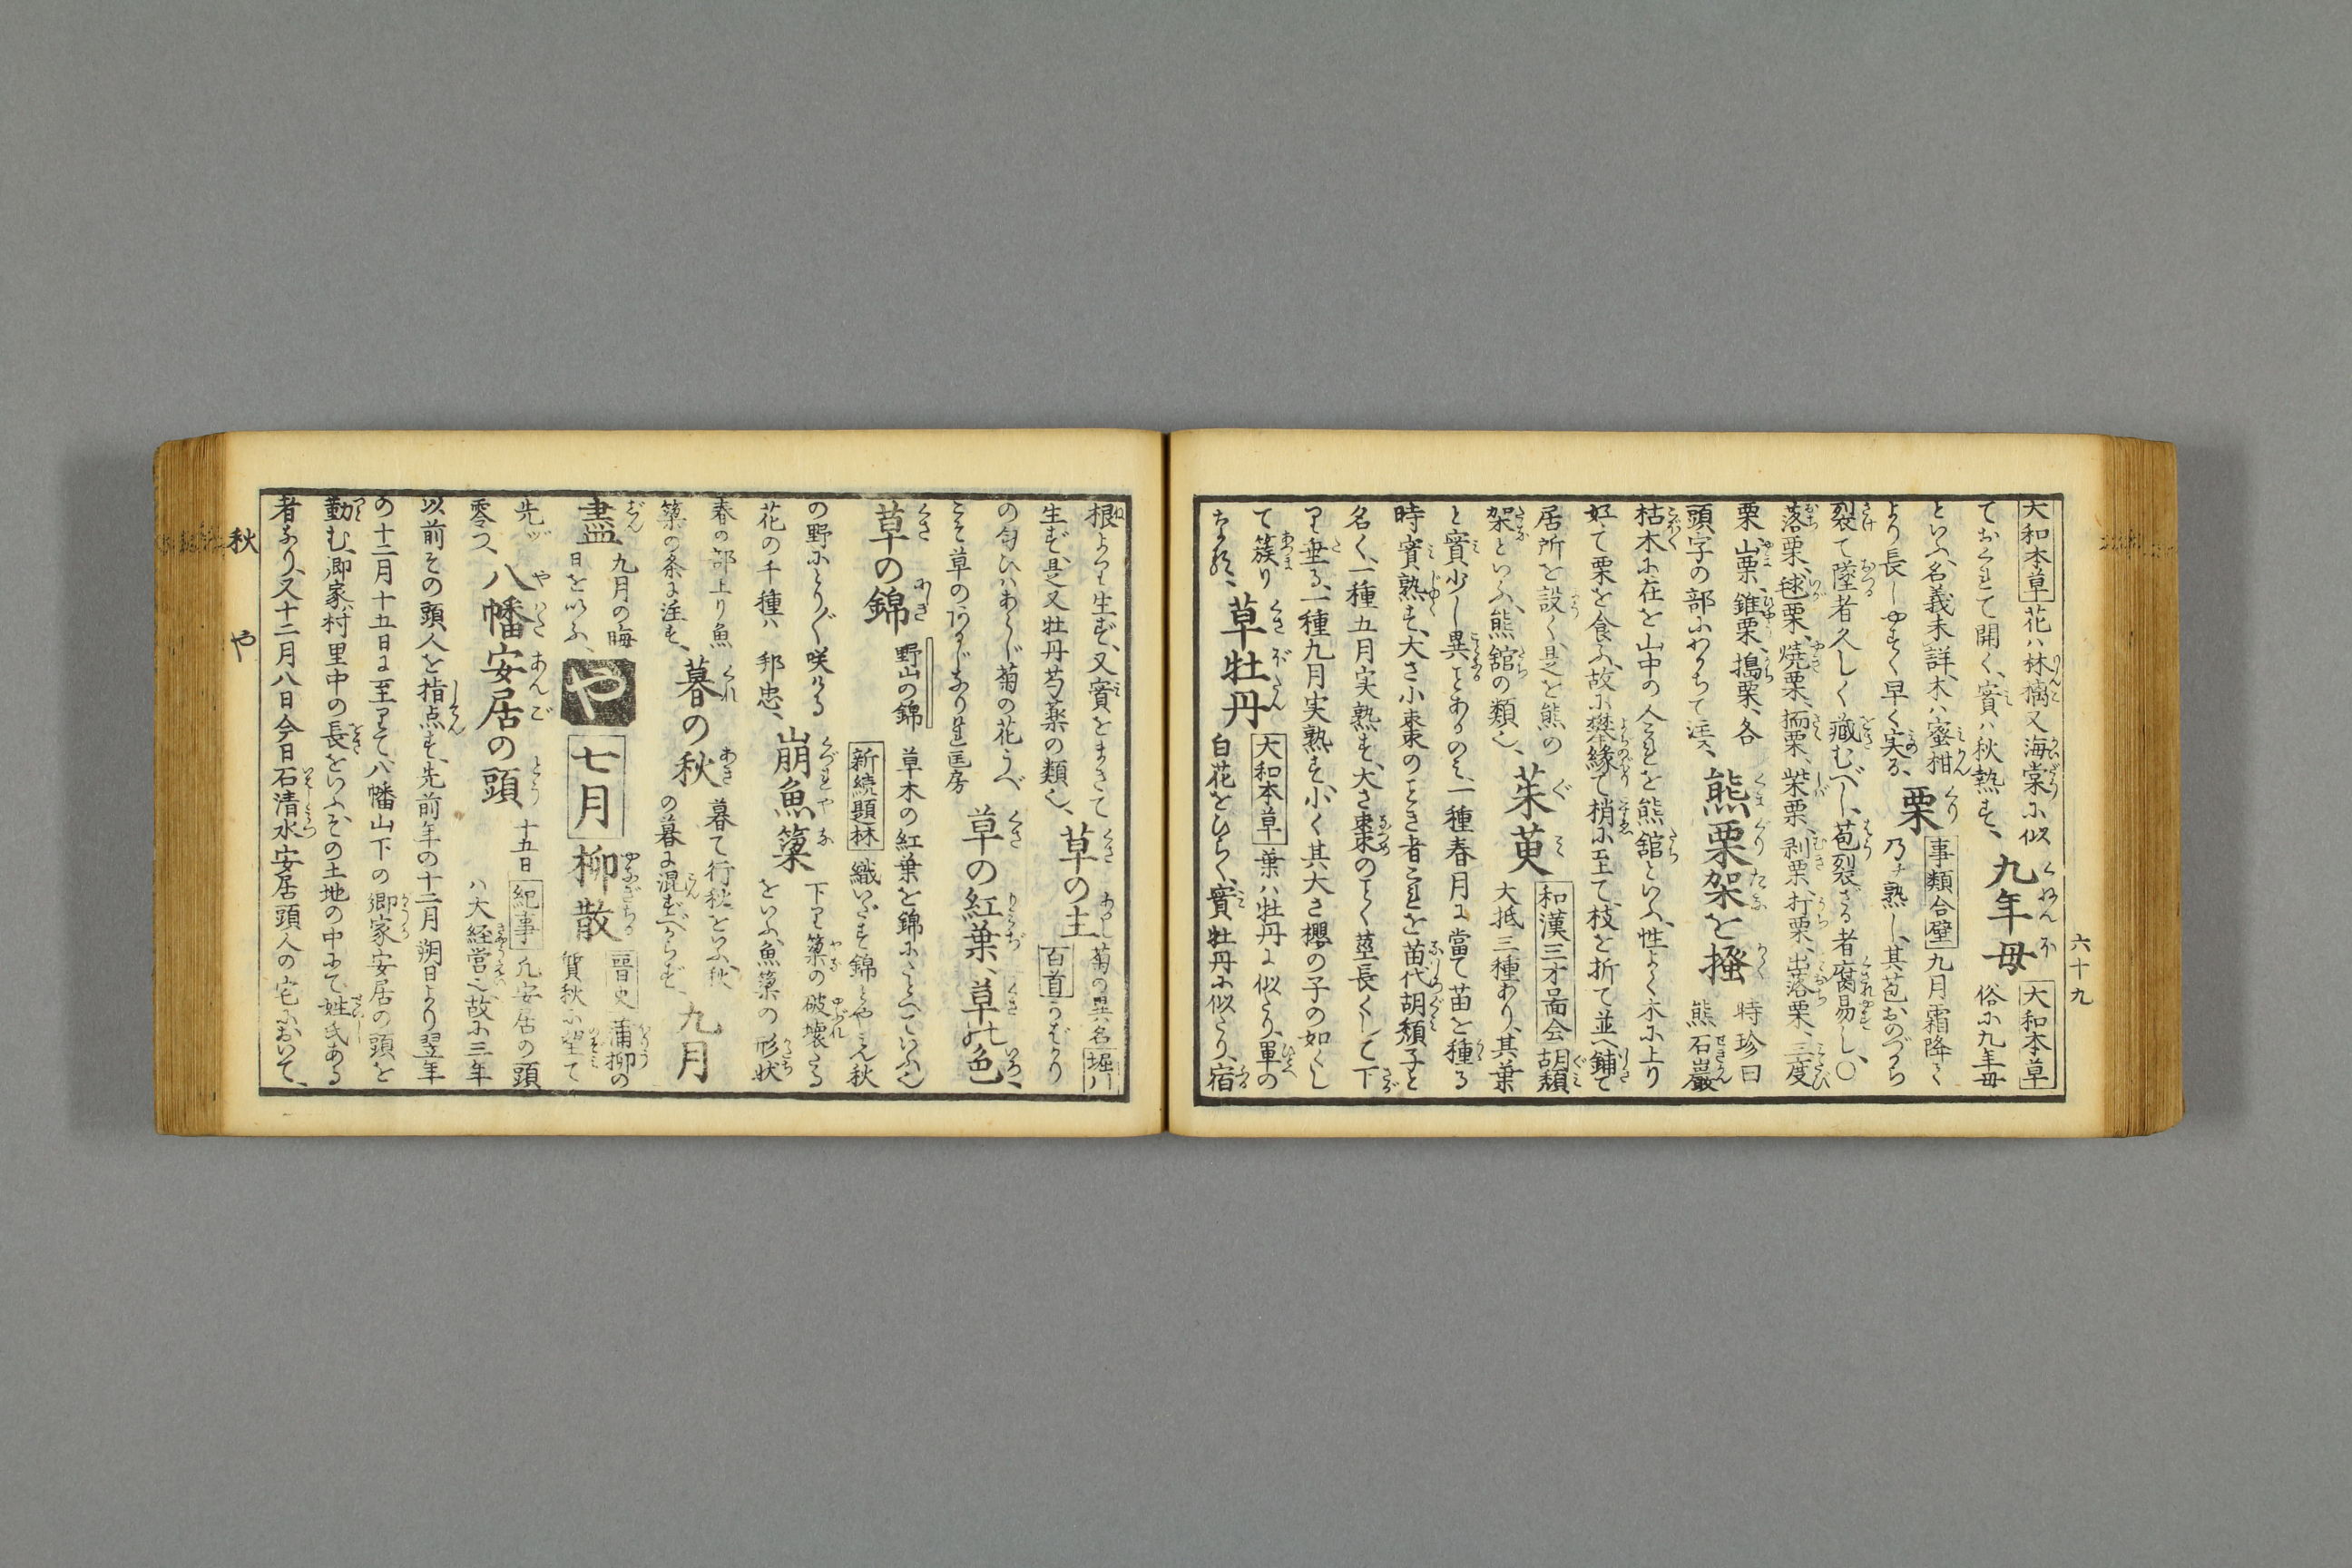 六十九
大和本草花ハ林檎又海棠に似
ておくれて開く、實ハ秋熟す、九年母大和本草俗に九年母
といふ、名義未詳、木ハ蜜柑
より長しやすく早く実る、栗事類合璧九月霜降て乃チ熟し、其苞おのづから
裂て墜者久しく藏むべし、苞裂ざる者腐易し、〇
落栗、毬栗、焼栗、𣏓栗、柴栗、剥栗、打栗、出落栗、三度
栗、山栗、錐栗、搗栗、各
頭字の部にわかちて注ス、熊栗架を掻時珍曰熊石巖
枯木に在を山中の人これを熊舘といふ、性よく木に上り
好て栗を食ふ、故に樊縁て梢に至て、枝を折て並べ舗て
居所を設く、是を熊の
架といふ、熊舘の類也、茱萸和漢三才圖会胡頽大抵三種あり、其葉
と實少し異ことあるのミ、一種春月に當て苗を種る
時實熟す、大さ小棗のごとき者これを苗代胡頽子と
名く、一種五月実熟す、大さ棗のごとく莖長くして下
り垂る、一種九月実熟す、小く其大さ櫻の子の如くし
て簇り
なる、草牡丹大和本草葉ハ牡丹に似たり、單の
白花をひらく、實牡丹に似たり、宿
根より生ず、又實をまきて
生ず、是又牡丹芍薬の類也、草の主菊の異名堀川百首うばかり
の匂ひハあらじ菊の花うべ
こそ草のあるじなりけれ匡房草の紅葉、草の色、
草の錦野山の錦草木の紅葉を錦にたとへていふ也
新続題林織いだす錦とやミん秋
の野にとり〴〵咲ける
花の千種ハ邦忠、崩魚簗下り簗の破壊たる
をいふ、魚簗の形状
春の部上り魚
簗の条に注す、暮の秋暮て行秋をいふ、秋
の暮に混ずべからず、九月
盡九月の晦
日をいふ、や七月柳散晋史蒲柳の
質秋に望て
先ヅ
零ツ、八幡安居の頭十五日紀事凡安居の頭
ハ大経営也、故に三年
以前その頭人を指点す、先前年の十二月朔日より翌年
の十二月十五日に至りて、八幡山下の郷家安居の頭を
勤む、郷家村里中の長をいふ、その土地の中にて、姓氏ある
者なり、又十二月八日今日石清水安居頭人の宅において、
秋 や